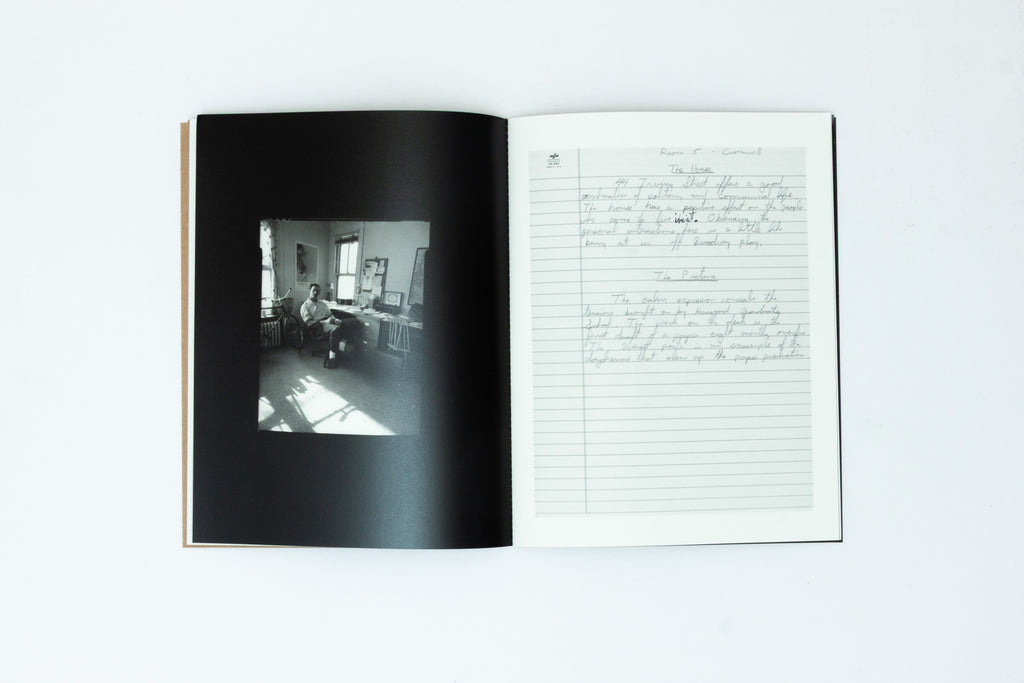 Room 5 - Cromwell
The House
44 Irving Street offers a good
combination of solitary and communal life.
The house has a positive effect on the people
who come to live in it. Observing the
personal interactions here is a little like
being at an off Broadway play.
The Picture
The calm expression conceals the
tensions brought on by Harvard Graduate
School. The work on the desk is the
first draft of a paper eight months overdue.
The Everest poster is an example of the
daydreams that slow up the paper production